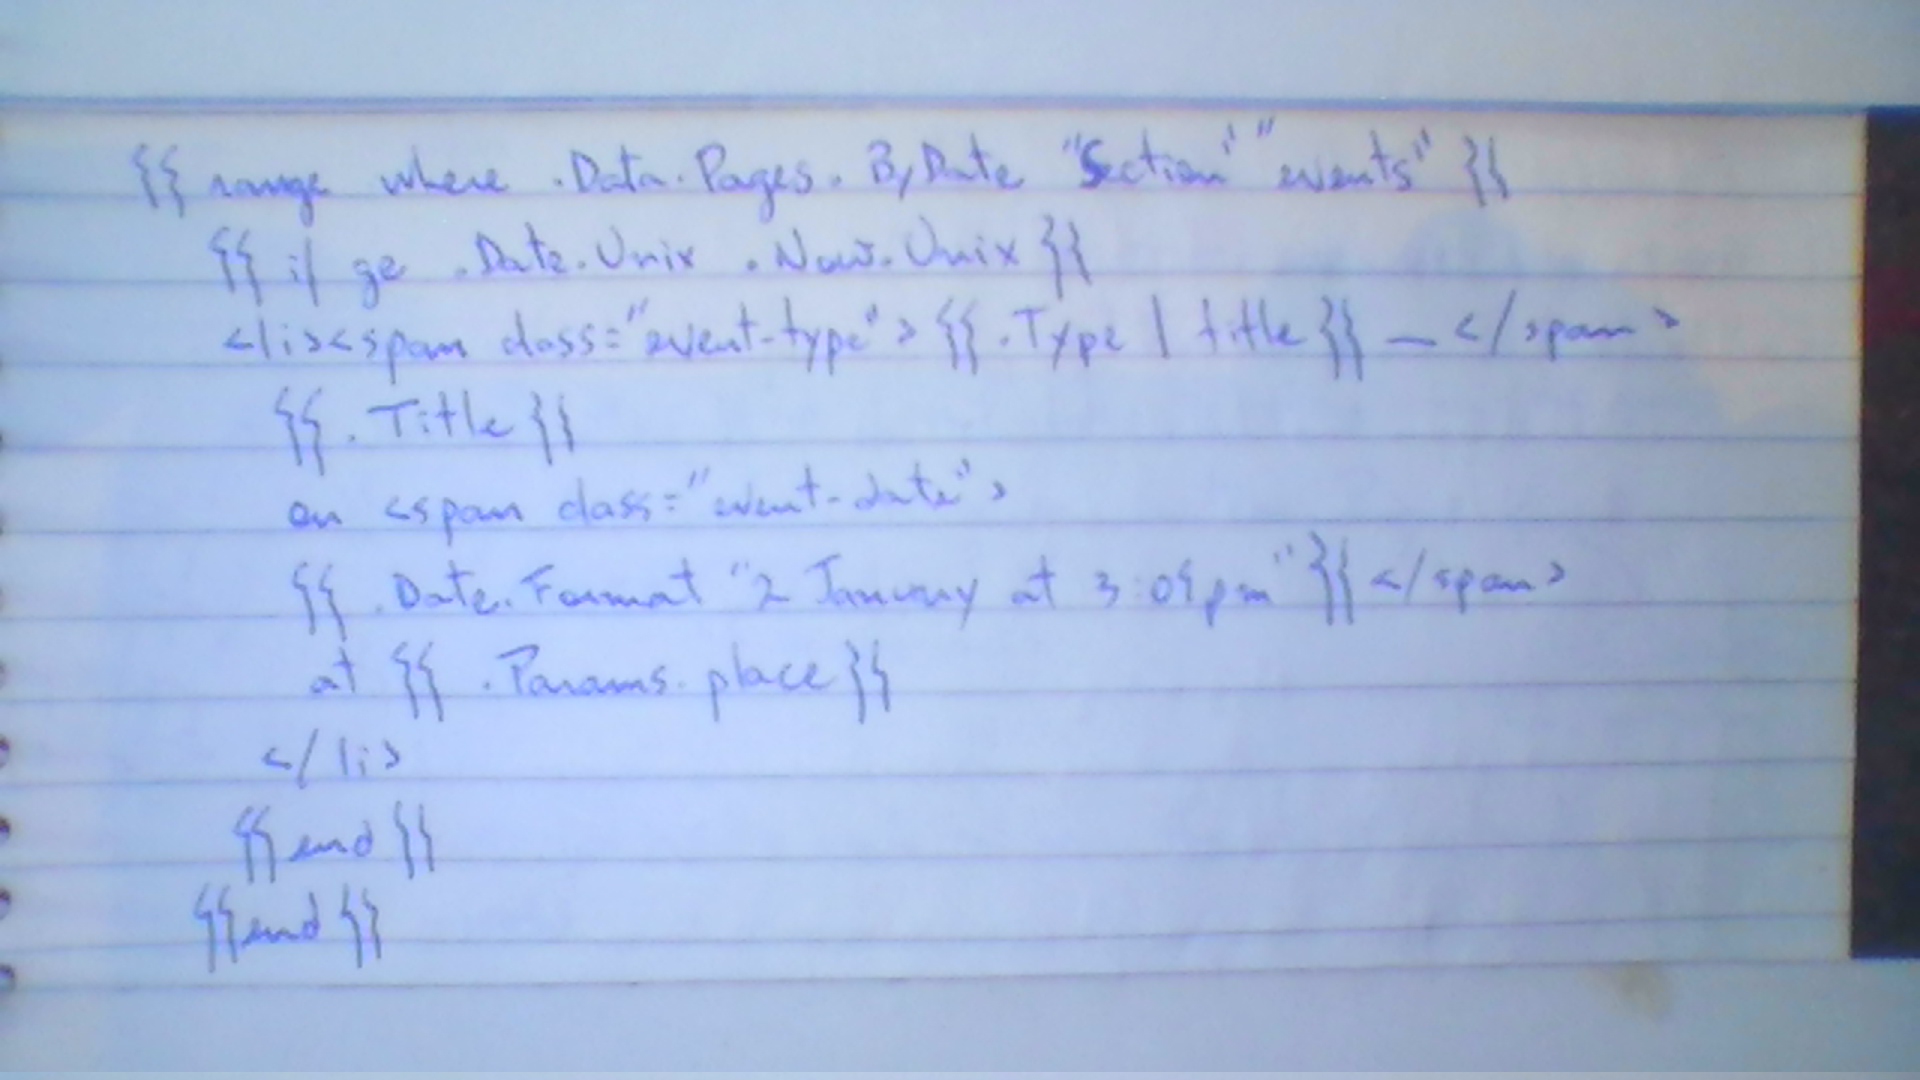 {{ range where .Data.Pages.ByDate "Section" "events" }}
{{ if ge .Date.Unix .Now.Unix }}
<li><span class="event-type">{{ .Type | title }} – </span>
{{ .Title }}
on <span class="event-date">
{{ .Date.Format "2 January at 3:04pm" }}</span>
at {{ .Params.place }}
</li>
{{ end }}
{{ end }}